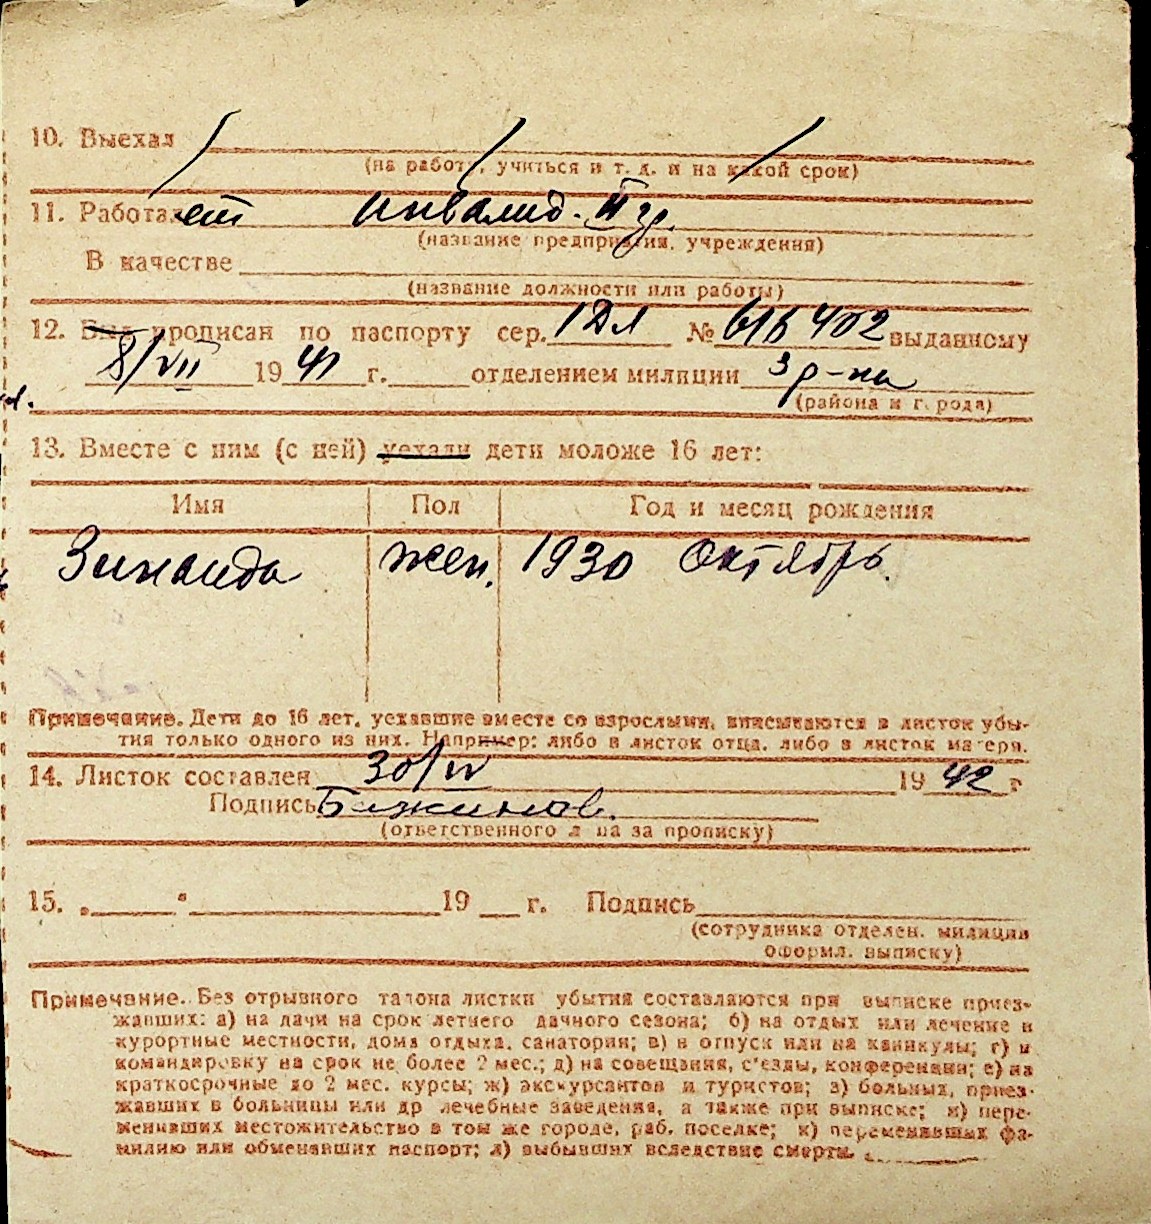 10. Выехал
(на работу, учиться и т. д. и на какой срок)
11. Работает инвалид. II гр.
(название предприятия, учреждения)
В качестве
(название должности или работы)
12. Был прописан по паспорту сер. 1 Дл № 616402 выданному
8/VII 1941 г. отделением милиции 3 р-на
(района и города)
13. Вместе с ним (с ней) уехали дети моложе 16 лет:
Имя Пол Год и месяц рождения
Зинаида жен. 1930 Октябрь.
Примечание. Дети до 16 лет, уехавшие вместе со взрослыми, вписываются в листок убы-
тия только одного из них. Например: либо в листок отца, либо в листок матери.
14. Листок составлен 30/IV 1942 г
Подпись Бажинов.
(ответственного лица за прописку)
15. „ “ 19 г. Подпись
(сотрудника отделен. милиции
оформл. выписку)
Примечание. Без отрывного талона листки убытия составляются при выписке приез-
жавших: а) на дачи на срок летнего дачного сезона; б) на отдых или лечение в
курортные местности, дома отдыха, санатории; в) в отпуск или на каникулы; г) в
командировку на срок не более 2 мес.; д) на совещания, с'езды, конференции; е) на
краткосрочные до 2 мес. курсы; ж) экскурсантов и туристов; з) больных, приез-
жавших в больницы или др лечебные заведения, а также при выписке; и) пере-
менивших местожительство в том же городе, раб. поселке; к) переменявших фа-
милию или обменявших паспорт; л) выбывших вследствие смерти.